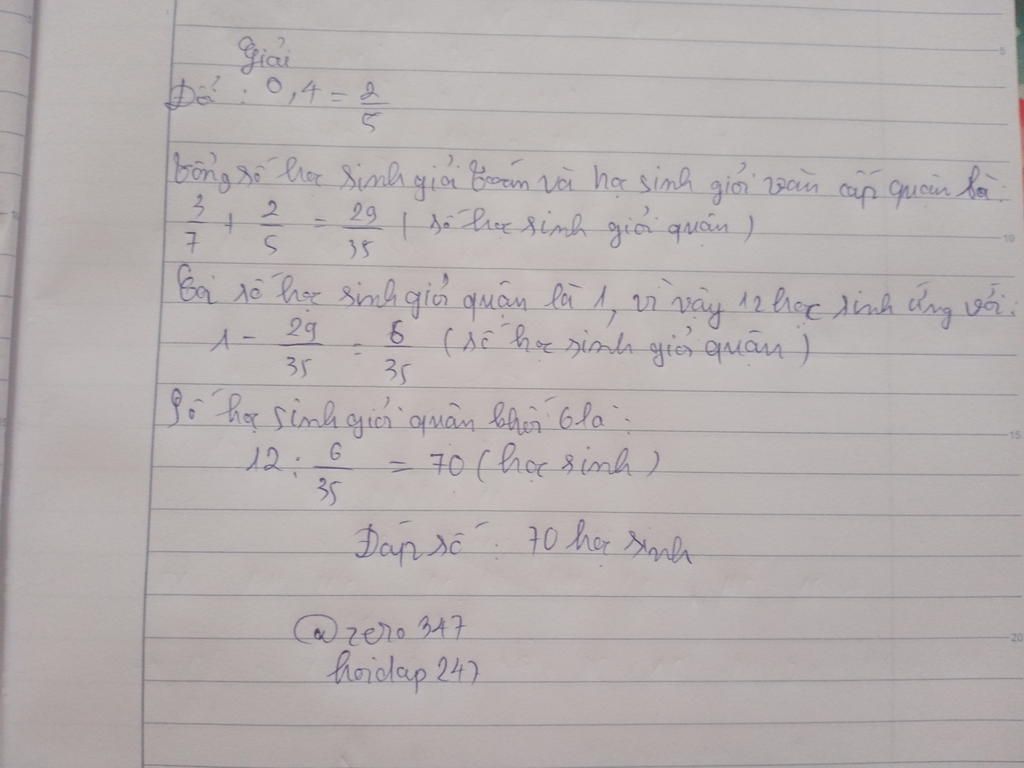 Giải
Đổi : 0,4 = 2/5
Tổng số học sinh giỏi toán và học sinh giỏi văn cấp quận là:
3/7 + 2/5 = 29/35 ( số học sinh giỏi quận )
Gọi số học sinh giỏi quận là 1, vì vậy 12 học sinh ứng với:
1 - 29/35 = 6/35 ( số học sinh giỏi quận )
Số học sinh giỏi quận khối 6 là :
12 : 6/35 = 70 ( học sinh )
Đáp số : 70 học sinh
@zero347
hoidap247